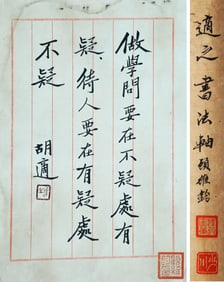 做學問要在不疑處有
疑、待人要在有疑處
不疑
胡適
適之書法軸